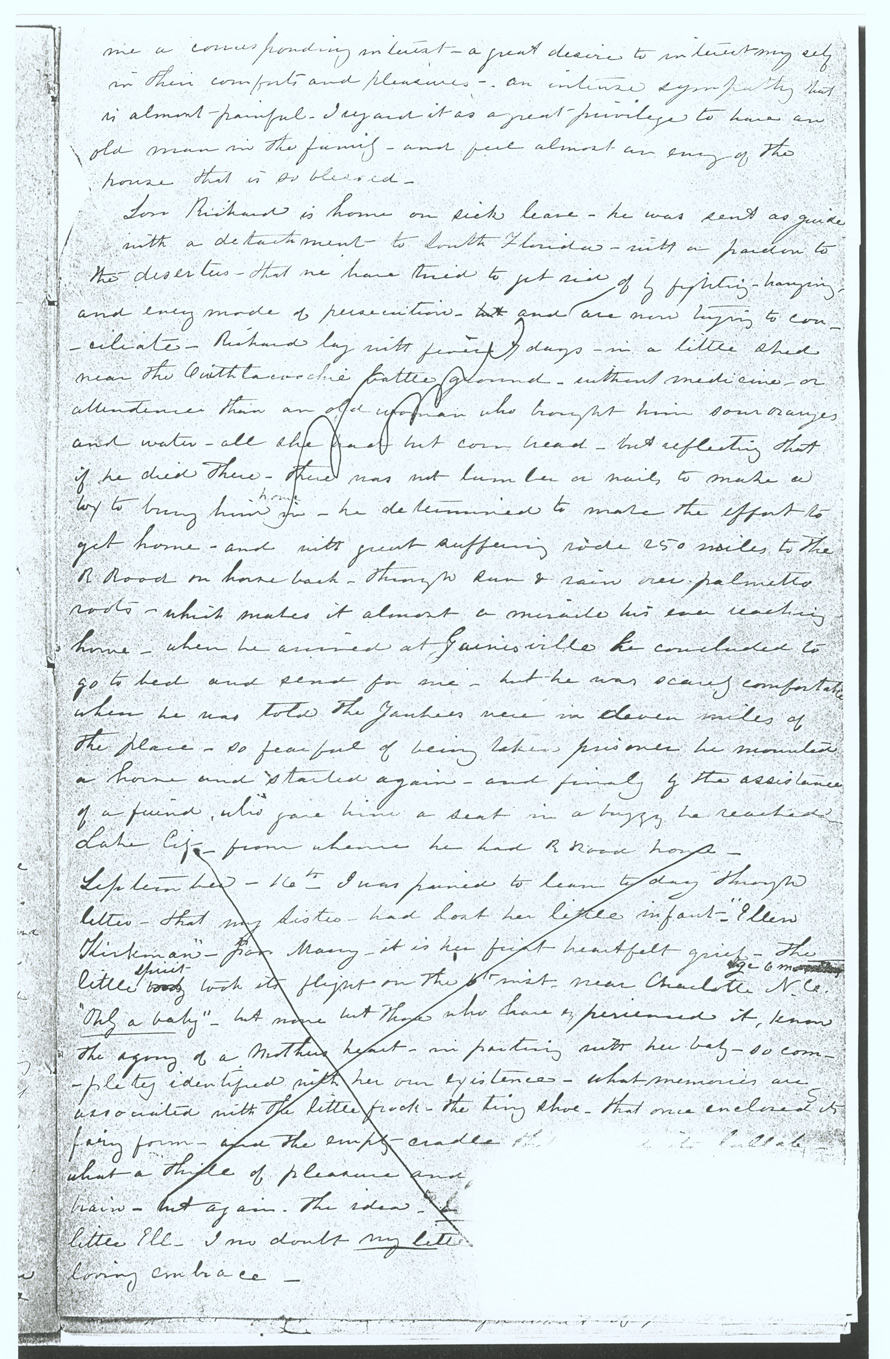 me a corresponding interest - a great desire to interest my self
in their comforts and pleasures - an intense sympathy that
is almost painful - I regard it as a great privilege to have an
old man in the family - and feel almost an envy of the
house that is so blessed -
Son Richard is home on sick leave - he was sent as guide
with a detachment to South Florida - with a pardon to
the deserters - that we have tried to get rid of by fighting - hanging -
and every mode of persecution - but and are now trying to con-
-ciliate - Richard lay with fever 7 days - in a little shed
near the Withlacoochie battle ground - without medicine - or
attendence than an old woman who brought him sour oranges
and water - all she had but corn bread - but reflecting that
if he died there - there was not lumber or nails to make a
box to bring him home in - he determined to make the effort to
get home - and with great suffering rode 250 miles to the
R Road on horse back - through sun & rain over palmetto
roots - which makes it almost a miracle his ever reaching
home - when he arrived at Gainesville he concluded to
go to bed and send for me - but he was scarcely comfortable
when he was told the Yankees were in eleven miles of
the place - so fearful of being taken prisoner he mounted
a horse and started again - and finaly by the assistance
of a friend who gave him a seat in a buggy he reached
Lake City - from whence he had R Road home -
September - 16th I was pained to learn to day through
letter - that my Sister - had lost her little infant - "Ellen
Kirkman" - Poor Mary - it is her first heartfelt grief - The
little body spirit took its flight on the 6th inst. near Charlotte N. Ca.
"Only a baby" - but none but those who have experienced it, know
the agony of a Mothers heart - in parting with her baby - so com-
-pletely identified with her own existence - what memories are
associated with the little frock - the tiny shoe - that once enclosed its
fairy form - and the empty cradle
what a thrill of pleasure and
brain - but again - the idea -
little Ell - I no doubt my litt
loving embrace -